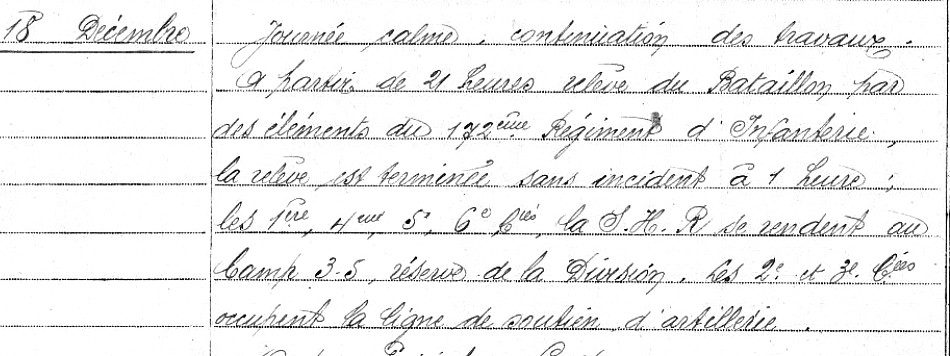 18 Décembre Journée calme, continuation des travaux.
A partir de 21 heures relève du Bataillon par
des éléments du 172ème Régiment d'Infanterie,
la relève est terminée sans incident à 1 heure ;
les 1ère, 4eme, 5e, 6e Cies, la S.H.R se rendent au
Camp 3-5, réserve de la Division. Les 2e et 3e Cies
occupent la ligne de soutien d'artillerie.